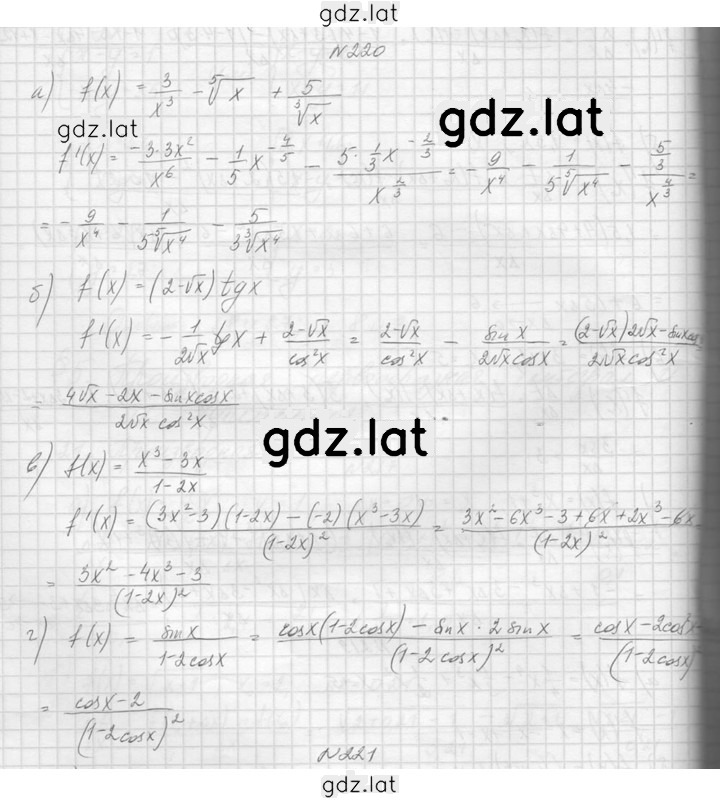 gdz.lat
N220
а) f(x) = 3/x³ - ⁵√x + 5/³√x
gdz.lat
gdz.lat
f'(x) = -3·3x²/x⁶ - 1/5 x^(-4/5) - (5·1/3 x^(-2/3))/x^(2/3) = -9/x⁴ - 1/(5 ⁵√x⁴) - (5/3)/x^(4/3) =
= -9/x⁴ - 1/(5 ⁵√x⁴) - 5/(3 ³√x⁴)
б) f(x) = (2-√x) tgx
f'(x) = - 1/(2√x) tgx + (2-√x)/cos²x = (2-√x)/cos²x - sinx/(2√x cosx) = ((2-√x)2√x - sinxcosx)/(2√x cos²x)
= (4√x - 2x - sinxcosx)/(2√x cos²x)
gdz.lat
в) f(x) = (x³ - 3x)/(1-2x)
f'(x) = ((3x²-3)(1-2x) - (-2)(x³-3x))/(1-2x)² = (3x² - 6x³ - 3 + 6x + 2x³ - 6x)/(1-2x)²
= (3x² - 4x³ - 3)/(1-2x)²
г) f(x) = sinx/(1-2cosx) = (cosx(1-2cosx) - sinx · 2sinx)/(1-2cosx)² = (cosx - 2cos²x)/(1-2cosx)
= (cosx - 2)/(1-2cosx)²
N221
gdz.lat